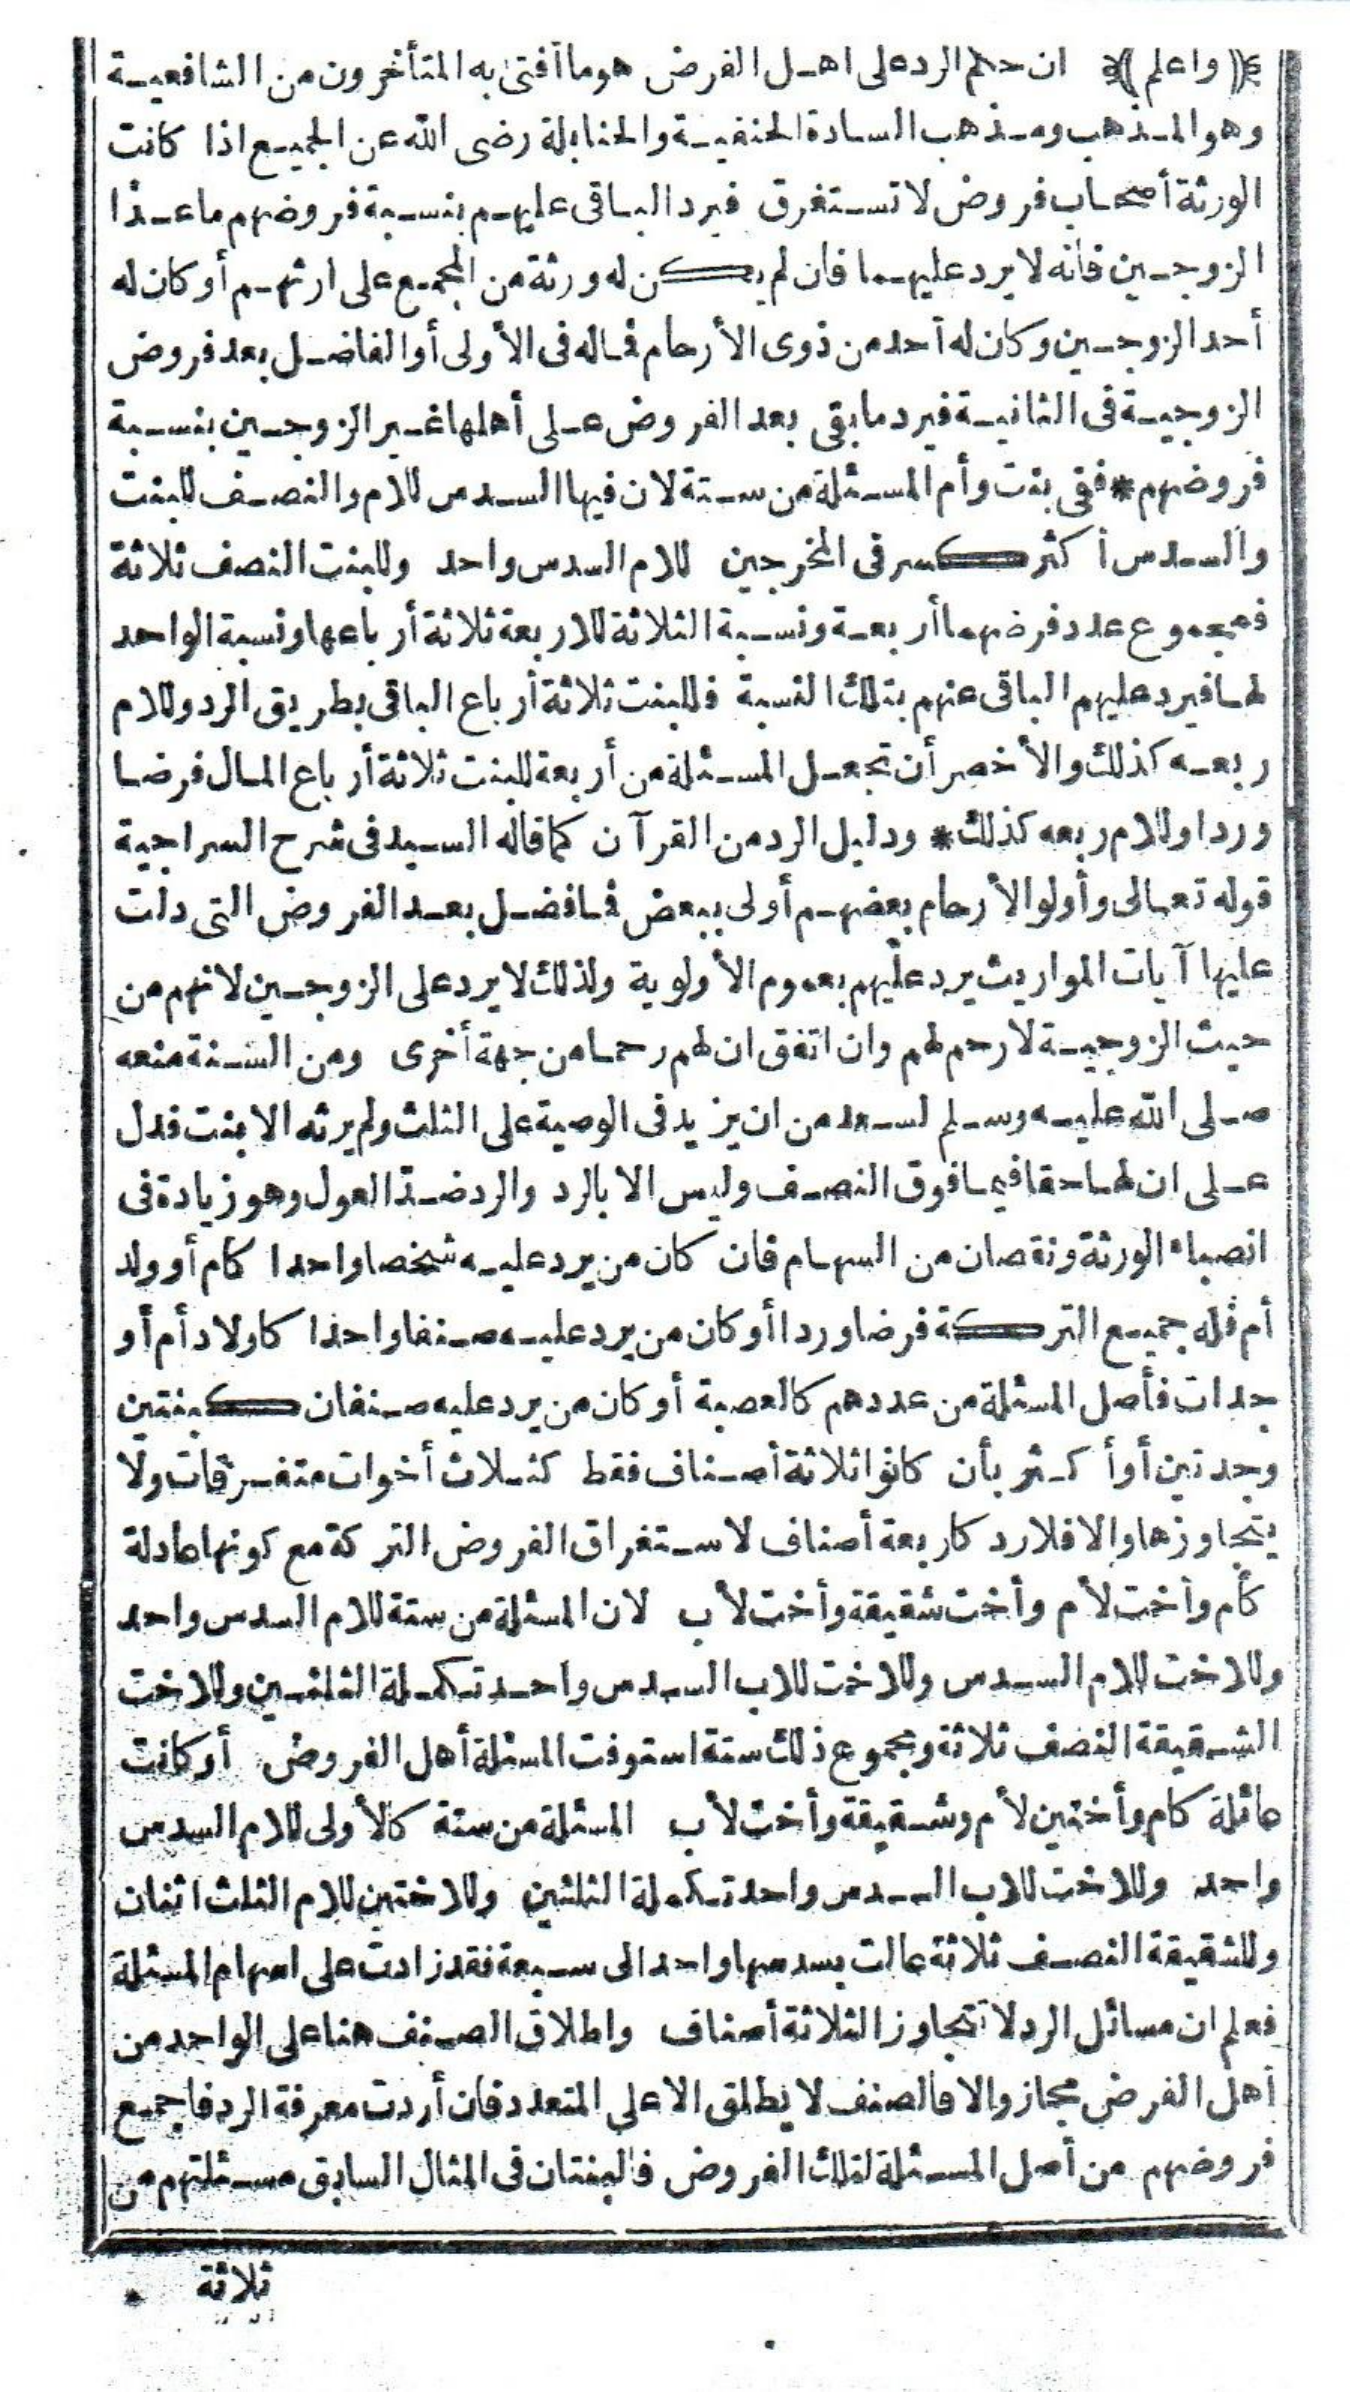 ﴿واعلم﴾ ان حكم الرد على اهل الفرض هو ما أفتى به المتأخرون من الشافعية
وهو المذهب ومذهب السادة الحنفية والحنابلة رضى الله عن الجميع اذا كانت
الورثة أصحاب فروض لا تستغرق فيرد الباقى عليهم بنسبة فروضهم ما عدا
الزوجين فانه لا يرد عليهما فان لم يكن له ورثة من المجمع على ارثهم أو كان له
أحد الزوجين وكان له أحد من ذوى الأرحام فماله فى الأولى أو الفاضل بعد فروض
الزوجية فى الثانية فيرد ما بقى بعد الفروض على أهلها غير الزوجين بنسبة
فروضهم * ففى بنت وأم المسئلة من ستة لان فيها السدس للام والنصف للبنت
والسدس أكثر كسر فى المخرجين للام السدس واحد وللبنت النصف ثلاثة
فمجموع عدد فرضهما أربعة ونسبة الثلاثة للاربعة ثلاثة أرباعها ونسبة الواحد
لها فيرد عليهم الباقى عنهم بتلك النسبة فللبنت ثلاثة أرباع الباقى بطريق الرد وللام
ربعه كذلك والأخصر أن تجعل المسئلة من أربعة للبنت ثلاثة أرباع المال فرضا
وردا وللام ربعه كذلك * ودليل الرد من القرآن كما قاله السيد فى شرح السراجية
قوله تعالى وأولو الأرحام بعضهم أولى ببعض فما فضل بعد الفروض التى دلت
عليها آيات المواريث يرد عليهم بعموم الأولوية ولذلك لا يرد على الزوجين لانهم من
حيث الزوجية لا رحم لهم وان اتفق ان لهم رحما من جهة أخرى ومن السنة منعه
صلى الله عليه وسلم لسعد من ان يزيد فى الوصية على الثلث ولم يرثه الا بنت فدل
على ان لها حقا فيما فوق النصف وليس الا بالرد والرد ضد العول وهو زيادة فى
انصباء الورثة ونقصان من السهام فان كان من يرد عليه شخصا واحدا كام أو ولد
أم فله جميع التركة فرضا وردا أو كان من يرد عليه صنفا واحدا كاولاد أم أو
جدات فأصل المسئلة من عددهم كالعصبة أو كان من يرد عليه صنفان كبنتين
وجدتين أو أكثر بأن كانوا ثلاثة أصناف فقط كثلاث أخوات متفرقات ولا
يتجاوزها والا فلا رد كاربعة أصناف لاستغراق الفروض التركة مع كونها عادلة
كأم وأخت لأم وأخت شقيقة وأخت لأب لان المسئلة من ستة للام السدس واحد
وللاخت للام السدس وللاخت للاب السدس واحد تكملة الثلثين وللاخت
الشقيقة النصف ثلاثة ومجموع ذلك ستة استوفت المسئلة أهل الفروض أو كانت
عائلة كام وأختين لأم وشقيقة وأخت لأب المسئلة من ستة كالأولى للام السدس
واحد وللاخت للاب السدس واحد تكملة الثلثين وللاختين للام الثلث اثنان
وللشقيقة النصف ثلاثة عالت بسدسها واحد الى سبعة فقد زادت على اسهام المسئلة
فعلم ان مسائل الرد لا تتجاوز الثلاثة أصناف واطلاق الصنف هنا على الواحد من
أهل الفرض مجاز والا فالصنف لا يطلق الا على المتعدد فان أردت معرفة الرد فاجمع
فروضهم من أصل المسئلة لتلك الفروض فالبنتان فى المثال السابق مسئلتهم من
ثلاثة